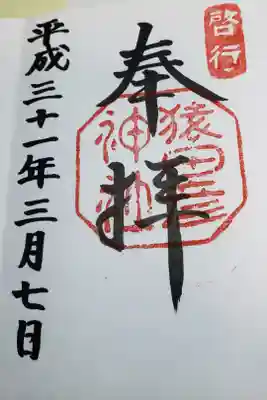 啓行
奉拝
猿田彦神社
平成三十一年三月七日